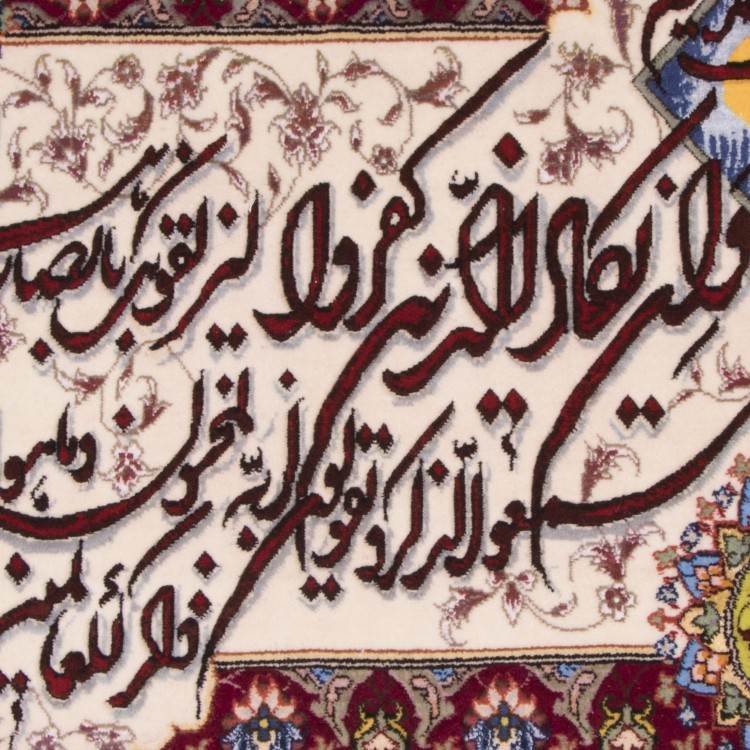 وان یکاد الذین کفروا لیزلقونک بابصار
سمعوا الذکر و یقولون انه لمجنون و ما هو
ذکر للعالمین